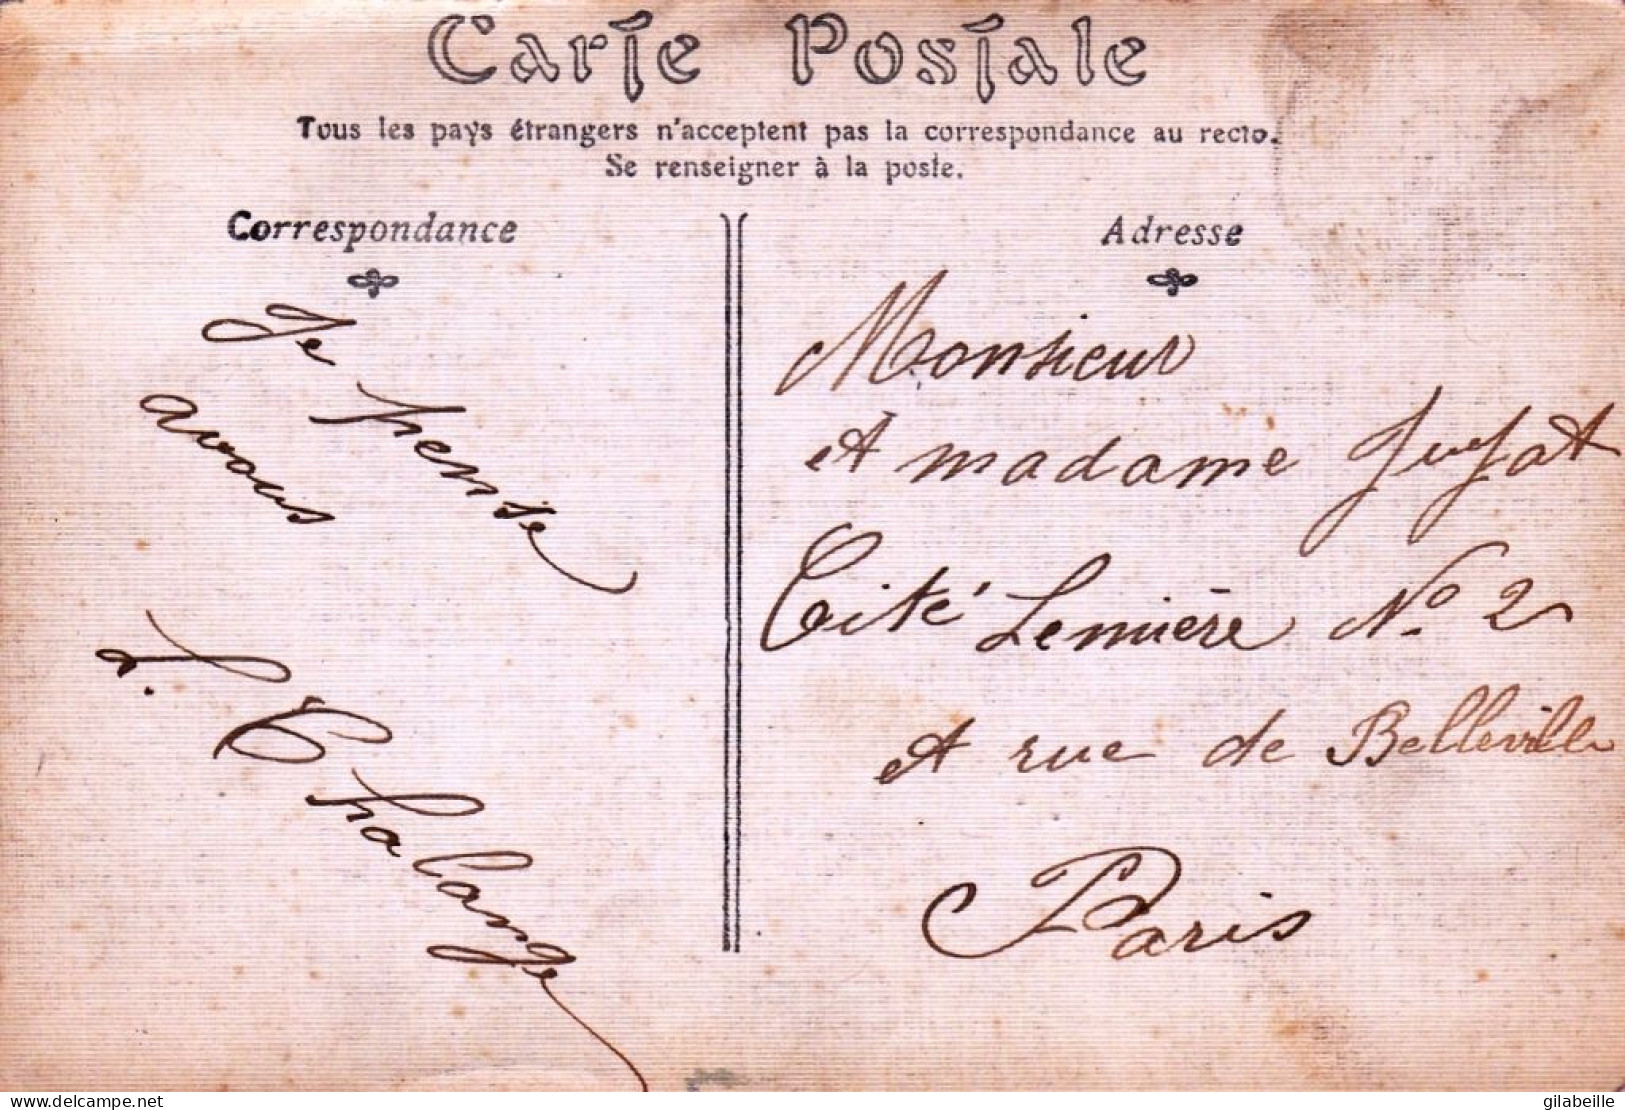 Carte Postale
Tous les pays étrangers n'acceptent pas la correspondance au recto.
Se renseigner à la poste.
Correspondance
Adresse
Je pense
avous
L. Chalange
Monsieur
et madame
Cité Lemière No 2
et rue de Belleville
Paris
delcampe.net
gilabeille